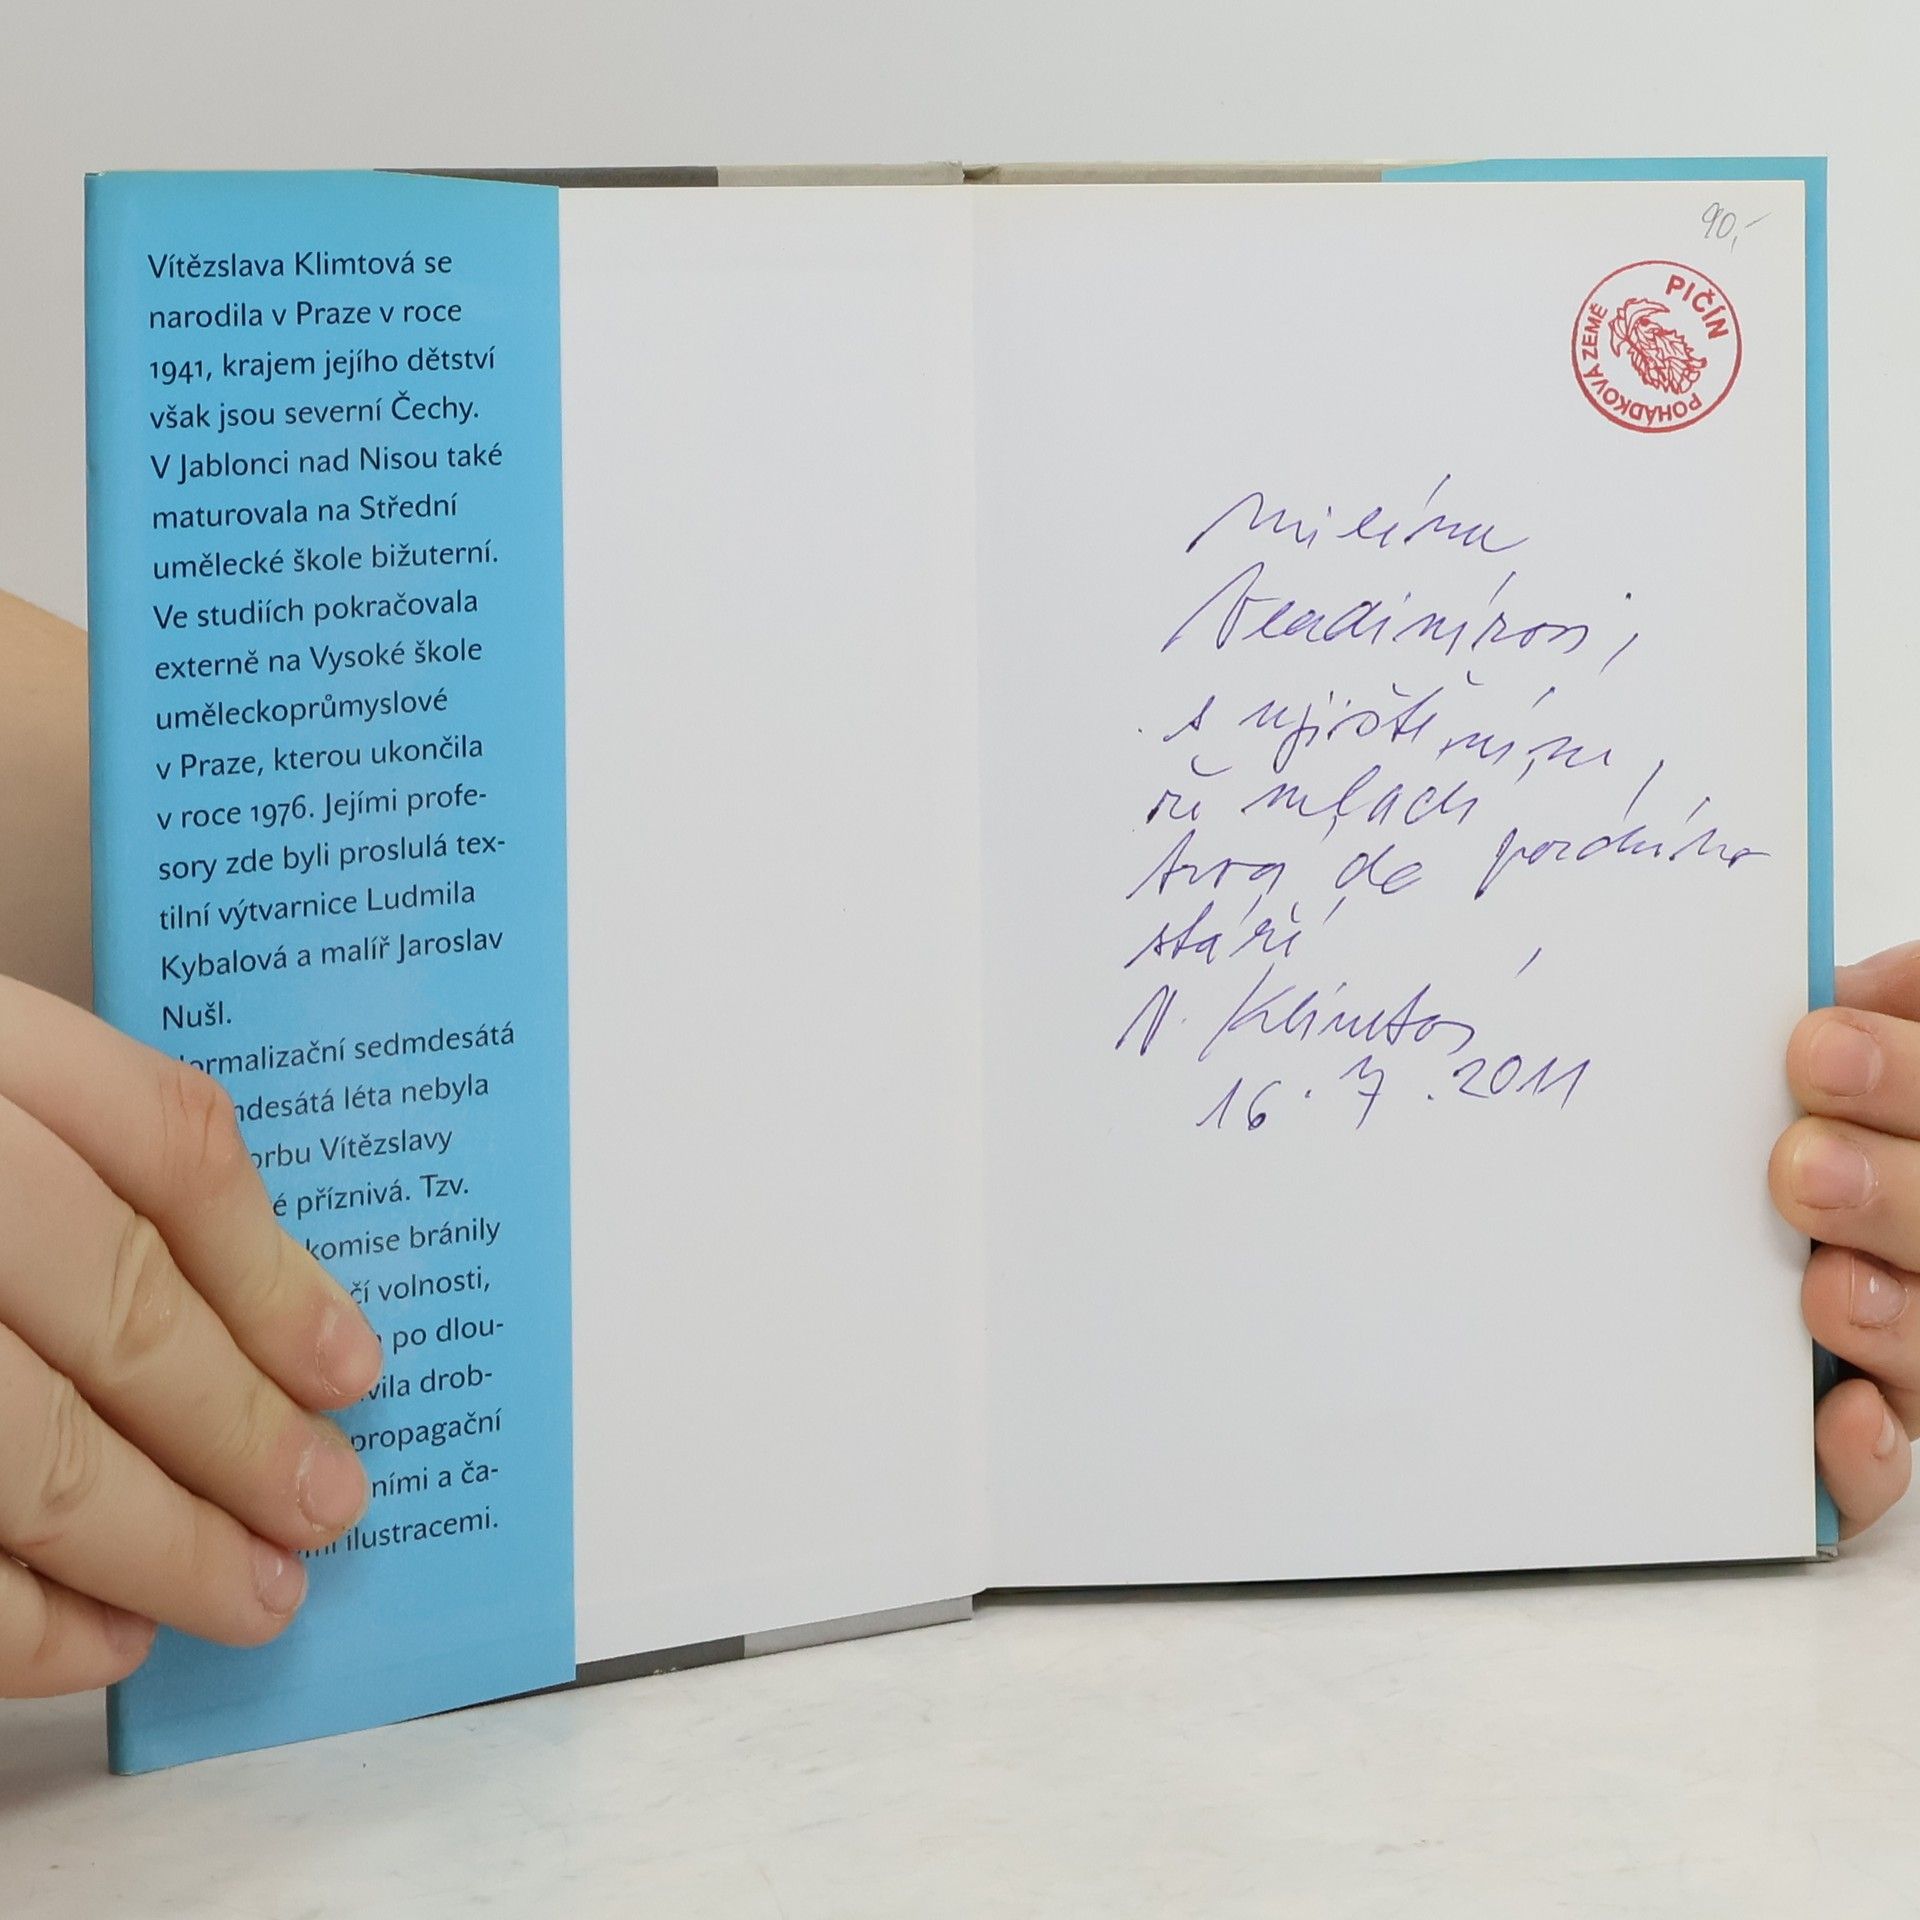 Vítězslava Klimtová se
narodila v Praze v roce
1941, krajem jejího dětství
však jsou severní Čechy.
V Jablonci nad Nisou také
maturovala na Střední
umělecké škole bižuterní.
Ve studiích pokračovala
externě na Vysoké škole
uměleckoprůmyslové
v Praze, kterou ukončila
v roce 1976. Jejími profe-
sory zde byli proslulá tex-
tilní výtvarnice Ludmila
Kybalová a malíř Jaroslav
Nušl.
sedmdesátá
léta nebyla
Vítězslavy
příznivá. Tzv.
komise bránily
volnosti,
po dlou-
drob-
propagační
a ča-
ilustracemi.
90,-
PIČÍN
POHÁDKOVÁ ZEMĚ
milému
Vladimírovi,
s ujištěním,
že mládí
trvá do pozdního
stáří
V. Klimtová
16. 7. 2011